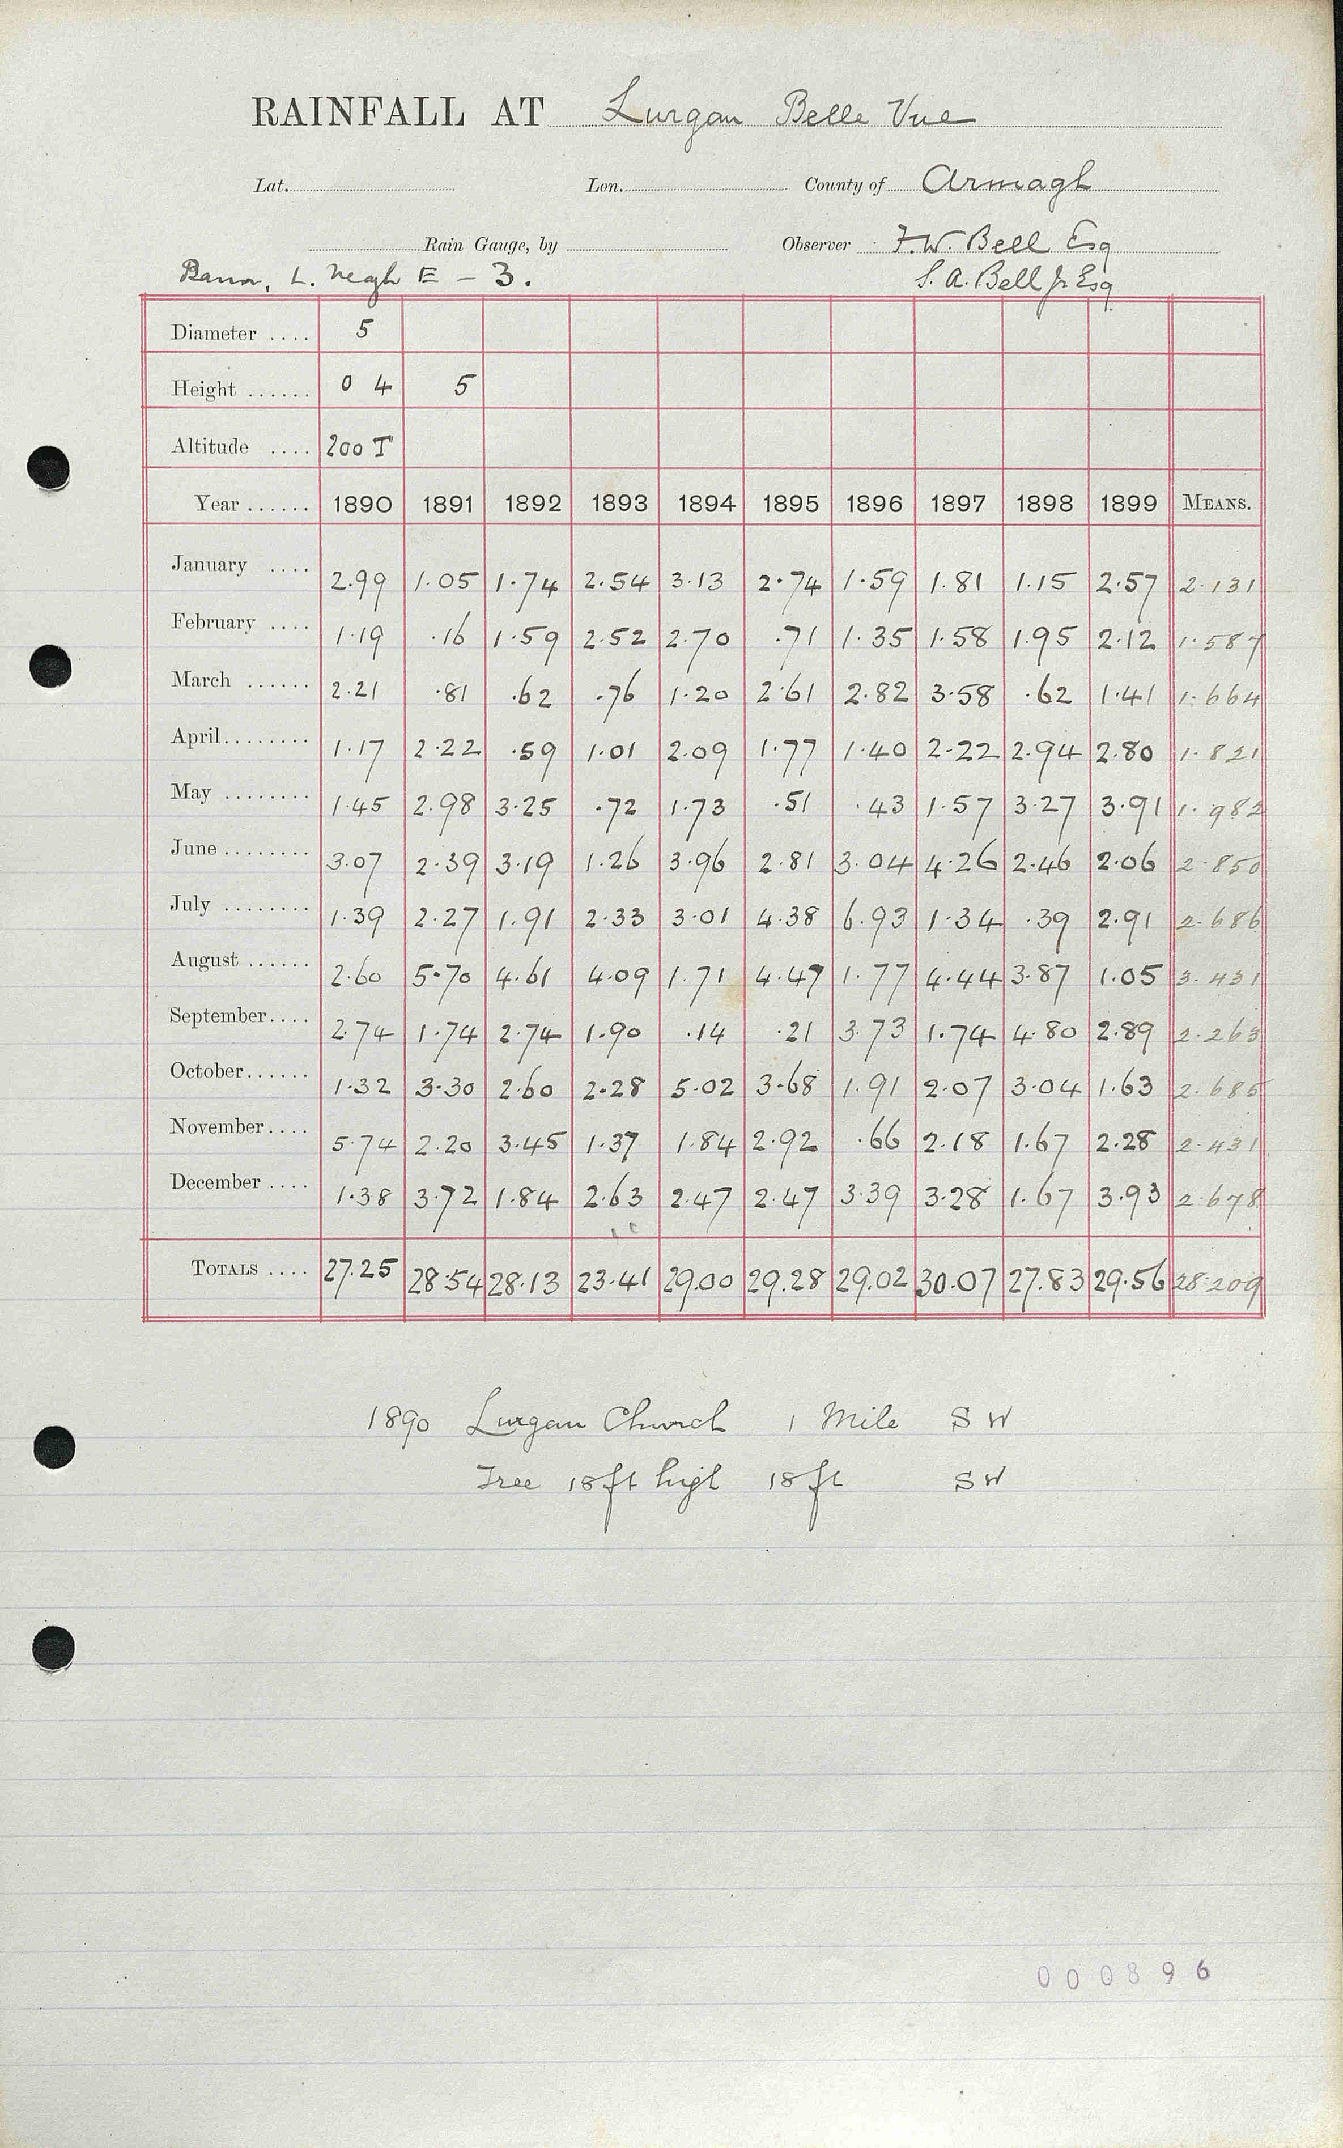 RAINFALL AT Lurgan Belle Vue
Lat. Lon. County of Armagh
Rain Gauge, by Observer F.W. Bell Esq
Bann, L. Neagh E - 3. S. A. Bell Jr Esq
Diameter .... 5
Height ...... 0 4 5
Altitude .... 200 T
Year ...... 1890 1891 1892 1893 1894 1895 1896 1897 1898 1899 MEANS.
January .... 2.99 1.05 1.74 2.54 3.13 2.74 1.59 1.81 1.15 2.57 2.131
February .... 1.19 .16 1.59 2.52 2.70 .71 1.35 1.58 1.95 2.12 1.587
March ...... 2.21 .81 .62 .76 1.20 2.61 2.82 3.58 .62 1.41 1.664
April........ 1.17 2.22 .59 1.01 2.09 1.77 1.40 2.22 2.94 2.80 1.821
May ........ 1.45 2.98 3.25 .72 1.73 .51 .43 1.57 3.27 3.91 1.982
June ........ 3.07 2.39 3.19 1.26 3.96 2.81 3.04 4.26 2.46 2.06 2.850
July ........ 1.39 2.27 1.91 2.33 3.01 4.38 6.93 1.34 .39 2.91 2.686
August ...... 2.60 5.70 4.61 4.09 1.71 4.47 1.77 4.44 3.87 1.05 3.431
September.... 2.74 1.74 2.74 1.90 .14 .21 3.73 1.74 4.80 2.89 2.263
October...... 1.32 3.30 2.60 2.28 5.02 3.68 1.91 2.07 3.04 1.63 2.685
November.... 5.74 2.20 3.45 1.37 1.84 2.92 .66 2.18 1.67 2.28 2.431
December .... 1.38 3.72 1.84 2.63 2.47 2.47 3.39 3.28 1.67 3.93 2.678
TOTALS .... 27.25 28.54 28.13 23.41 29.00 29.28 29.02 30.07 27.83 29.56 28.209
1890 Lurgan Church 1 Mile S W
Tree 18 ft high 18 ft S W
000896